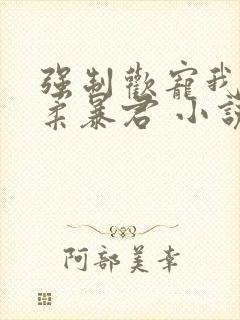 强制歡寵我
柔暴君 小說
阿部美幸